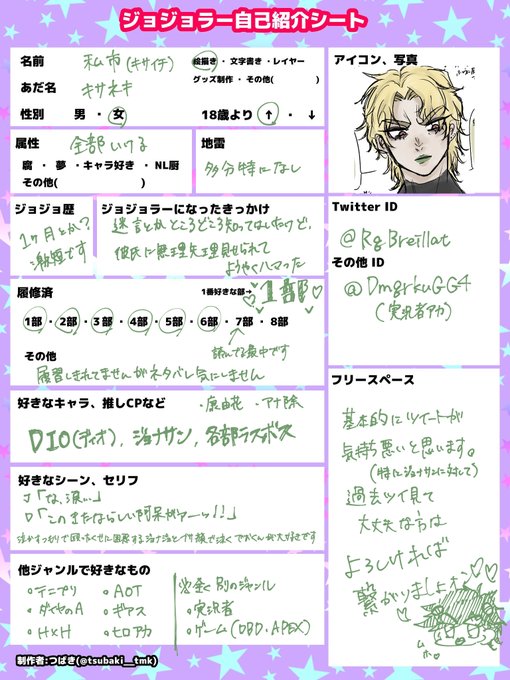 ジョジョラー自己紹介シート
名前
私市(キサイチ)
絵描き・文字書き・レイヤー
グッズ制作・その他( )
あだ名
キサネキ
性別 男・女 18歳より ↑・↓
属性
全部いける
腐・夢・キャラ好き・NL厨
その他( )
地雷
多分特になし
ジョジョ歴
1ヶ月とか?
激短です
ジョジョラーになったきっかけ
迷言とかところどころ知ってはいたけど、
彼氏に無理矢理見せられて
ようやくハマった
履修済
1番好きな部→
1部
1部・2部・3部・4部・5部・6部・7部・8部
読んでる最中です
その他
履習しきれてませんがネタバレ気にしません
好きなキャラ、推しCPなど
・康由花 ・アナ除
DIO(ディオ), ジョナサン, 各部ラスボス
好きなシーン、セリフ
J「な、涙…」
D「このきたならしい阿呆がァーッ!!」
他ジャンルで好きなもの
○テニプリ
○ダイヤのA
○H×H
○AOT
○ギアス
○ヒロアカ
※全く別のジャンル
○実況者
○ゲーム(DBD.APEX)
制作者:つばき(@tsubaki__tmk)
アイコン、写真
Twitter ID
@RgBreillat
その他 ID
@DmgrkuGG4
(実況者アカ)
フリースペース
基本的にツイートが
気持ち悪いと思います。
(特にジョナサンに対して)
過去ツイ見て
大丈夫な方は
よろしければ
繋がりましょォ〜